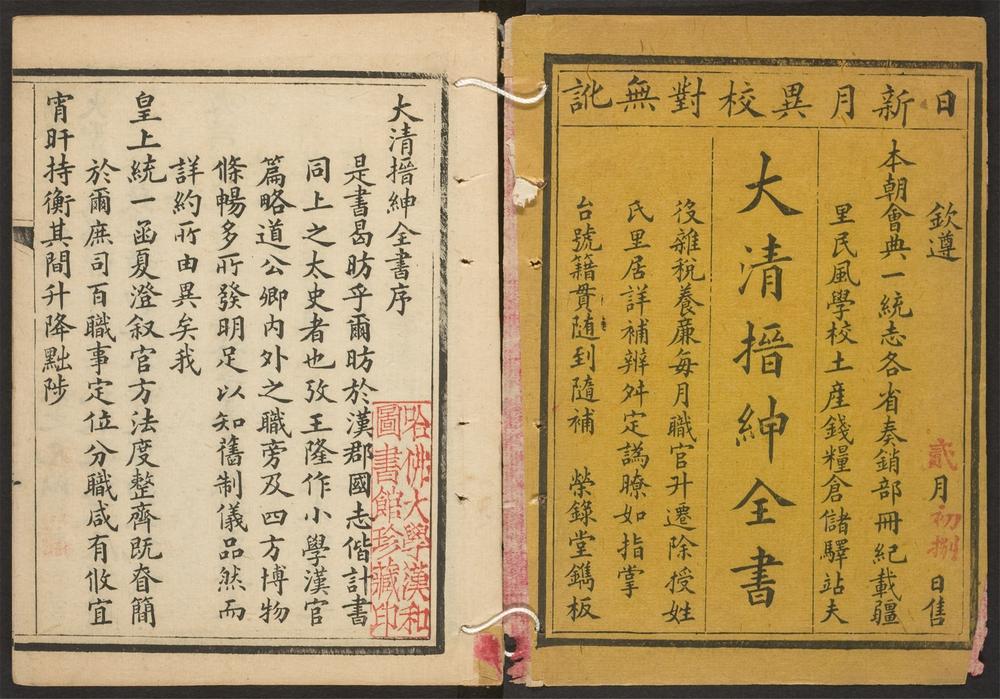 日新月異校對無訛
欽遵
貳月初捌日售
本朝會典一統志各省奏銷部冊紀載疆
里民風學校土産錢糧倉儲驛站夫
大清搢紳全書
役雜稅養廉每月職官升遷除授姓
氏里居詳補辨舛定譌瞭如指掌
台號籍貫随到隨補 榮錄堂鐫板
大清搢紳全書序
是書曷昉乎爾昉於漢郡國志偕計書
同上之太史者也攷王隆作小學漢官
篇略道公卿內外之職旁及四方博物
條暢多所發明足以知舊制儀品然而
詳約所由異矣我
皇上統一函夏澄叙官方法度整齊既眘簡
於爾庶司百職事定位分職咸有攸宜
宵旰持衡其間升降黜陟
哈佛大學漢和
圖書館珍藏印